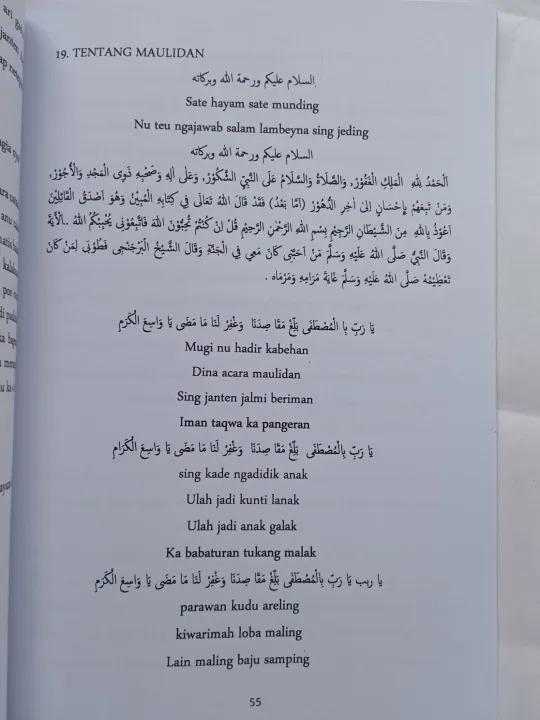 19. TENTANG MAULIDAN
السلام عليكم ورحمة الله وبركاته
Sate hayam sate munding
Nu teu ngajawab salam lambeyna sing jeding
السلام عليكم ورحمة الله وبركاته
اَلْحَمْدُ لِلّٰهِ الْمَلِكِ الْغَفُوْرْ, وَالصَّلَاةُ وَالسَّلَامُ عَلَى النَّبِيِّ الشَّكُوْرْ, وَعَلَى اٰلِهِ وَصَحْبِهِ ذَوِى الْمَجْدِ وَالْأُجُوْرْ,
وَمَنْ تَبِعَهُمْ بِإِحْسَانٍ اِلىَ اٰخِرِ الدُّهُوْرْ (اَمَّا بَعْدُ) فَقَدْ قَالَ اللهُ تَعَالَى فِي كِتَابِهِ الْمُبِيْنْ وَهُوَ اَصْدَقُ الْقَائِلِيْنَ
اَعُوْذُ بِاللهِ مِنَ الشَّيْطَانِ الرَّجِيْمِ بِسْمِ اللهِ الرَّحْمٰنِ الرَّحِيْمِ قُلْ اِنْ كُنْتُمْ تُحِبُّوْنَ اللهَ فَاتَّبِعُوْنِى يُحْبِبْكُمُ اللهُ ..اَلْأٰيَةْ
وَقَالَ النَّبِيُّ صَلَّى اللهُ عَلَيْهِ وَسَلَّمَ مَنْ اَحَبَّنِى كَانَ مَعِي فِي الْجَنَّةِ وَقَالَ الشَّيْخُ الْبَرْجَنْجِى فَطُوْبَى لِمَنْ كَانَ
تَعْظِيْمُهُ صَلَّى اللهُ عَلَيْهِ وَسَلَّمَ غَايَةَ مَرَامِهِ وَمَرْمَاه .
يَا رَبِّ بِا الْمُصْطَفَى بَلِّغْ مَقَا صِدَنَا وَغْفِرْ لَنَا مَا مَضَى يَا وَاسِعَ الْكَرَمِ
Mugi nu hadir kabehan
Dina acara maulidan
Sing janten jalmi beriman
Iman taqwa ka pangeran
يَا رَبِّ بِالْمُصْطَفَى بَلِّغْ مَقَا صِدَنَا وَغْفِرْ لَنَا مَا مَضَى يَا وَاسِعَ الْكَرَامِ
sing kade ngadidik anak
Ulah jadi kunti lanak
Ulah jadi anak galak
Ka babaturan tukang malak
يا ربب يَا رَبِّ بِالْمُصْطَفَى بَلِّغْ مَقَا صِدَنَا وَغْفِرْ لَنَا مَا مَضَى يَا وَاسِعَ الْكَرَمِ
parawan kudu areling
kiwarimah loba maling
Lain maling baju samping
55